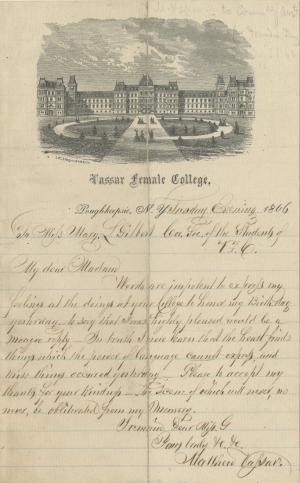 Vassar Female College,
Poughkeepsie, N. Y. Tuesday Evening 1866
To Miss Mary L Gilbert Cor. Sec. of the Students of
V. F. C.
My dear Madam
Words are impotent to express my
feelings at the doings at your College to honor my Birth day
yesterday - to say that I was highly pleased would be a
meager reply - In truth I now learn that the heart finds
things which the power of language cannot express, and
those things occured yesterday - Please to accept my
thanks for your kindness - the scene of which will never, no
never, be obliterated from my Memory.
I remain Dear Miss G
Yours truly &c &c
Matthew Vassar